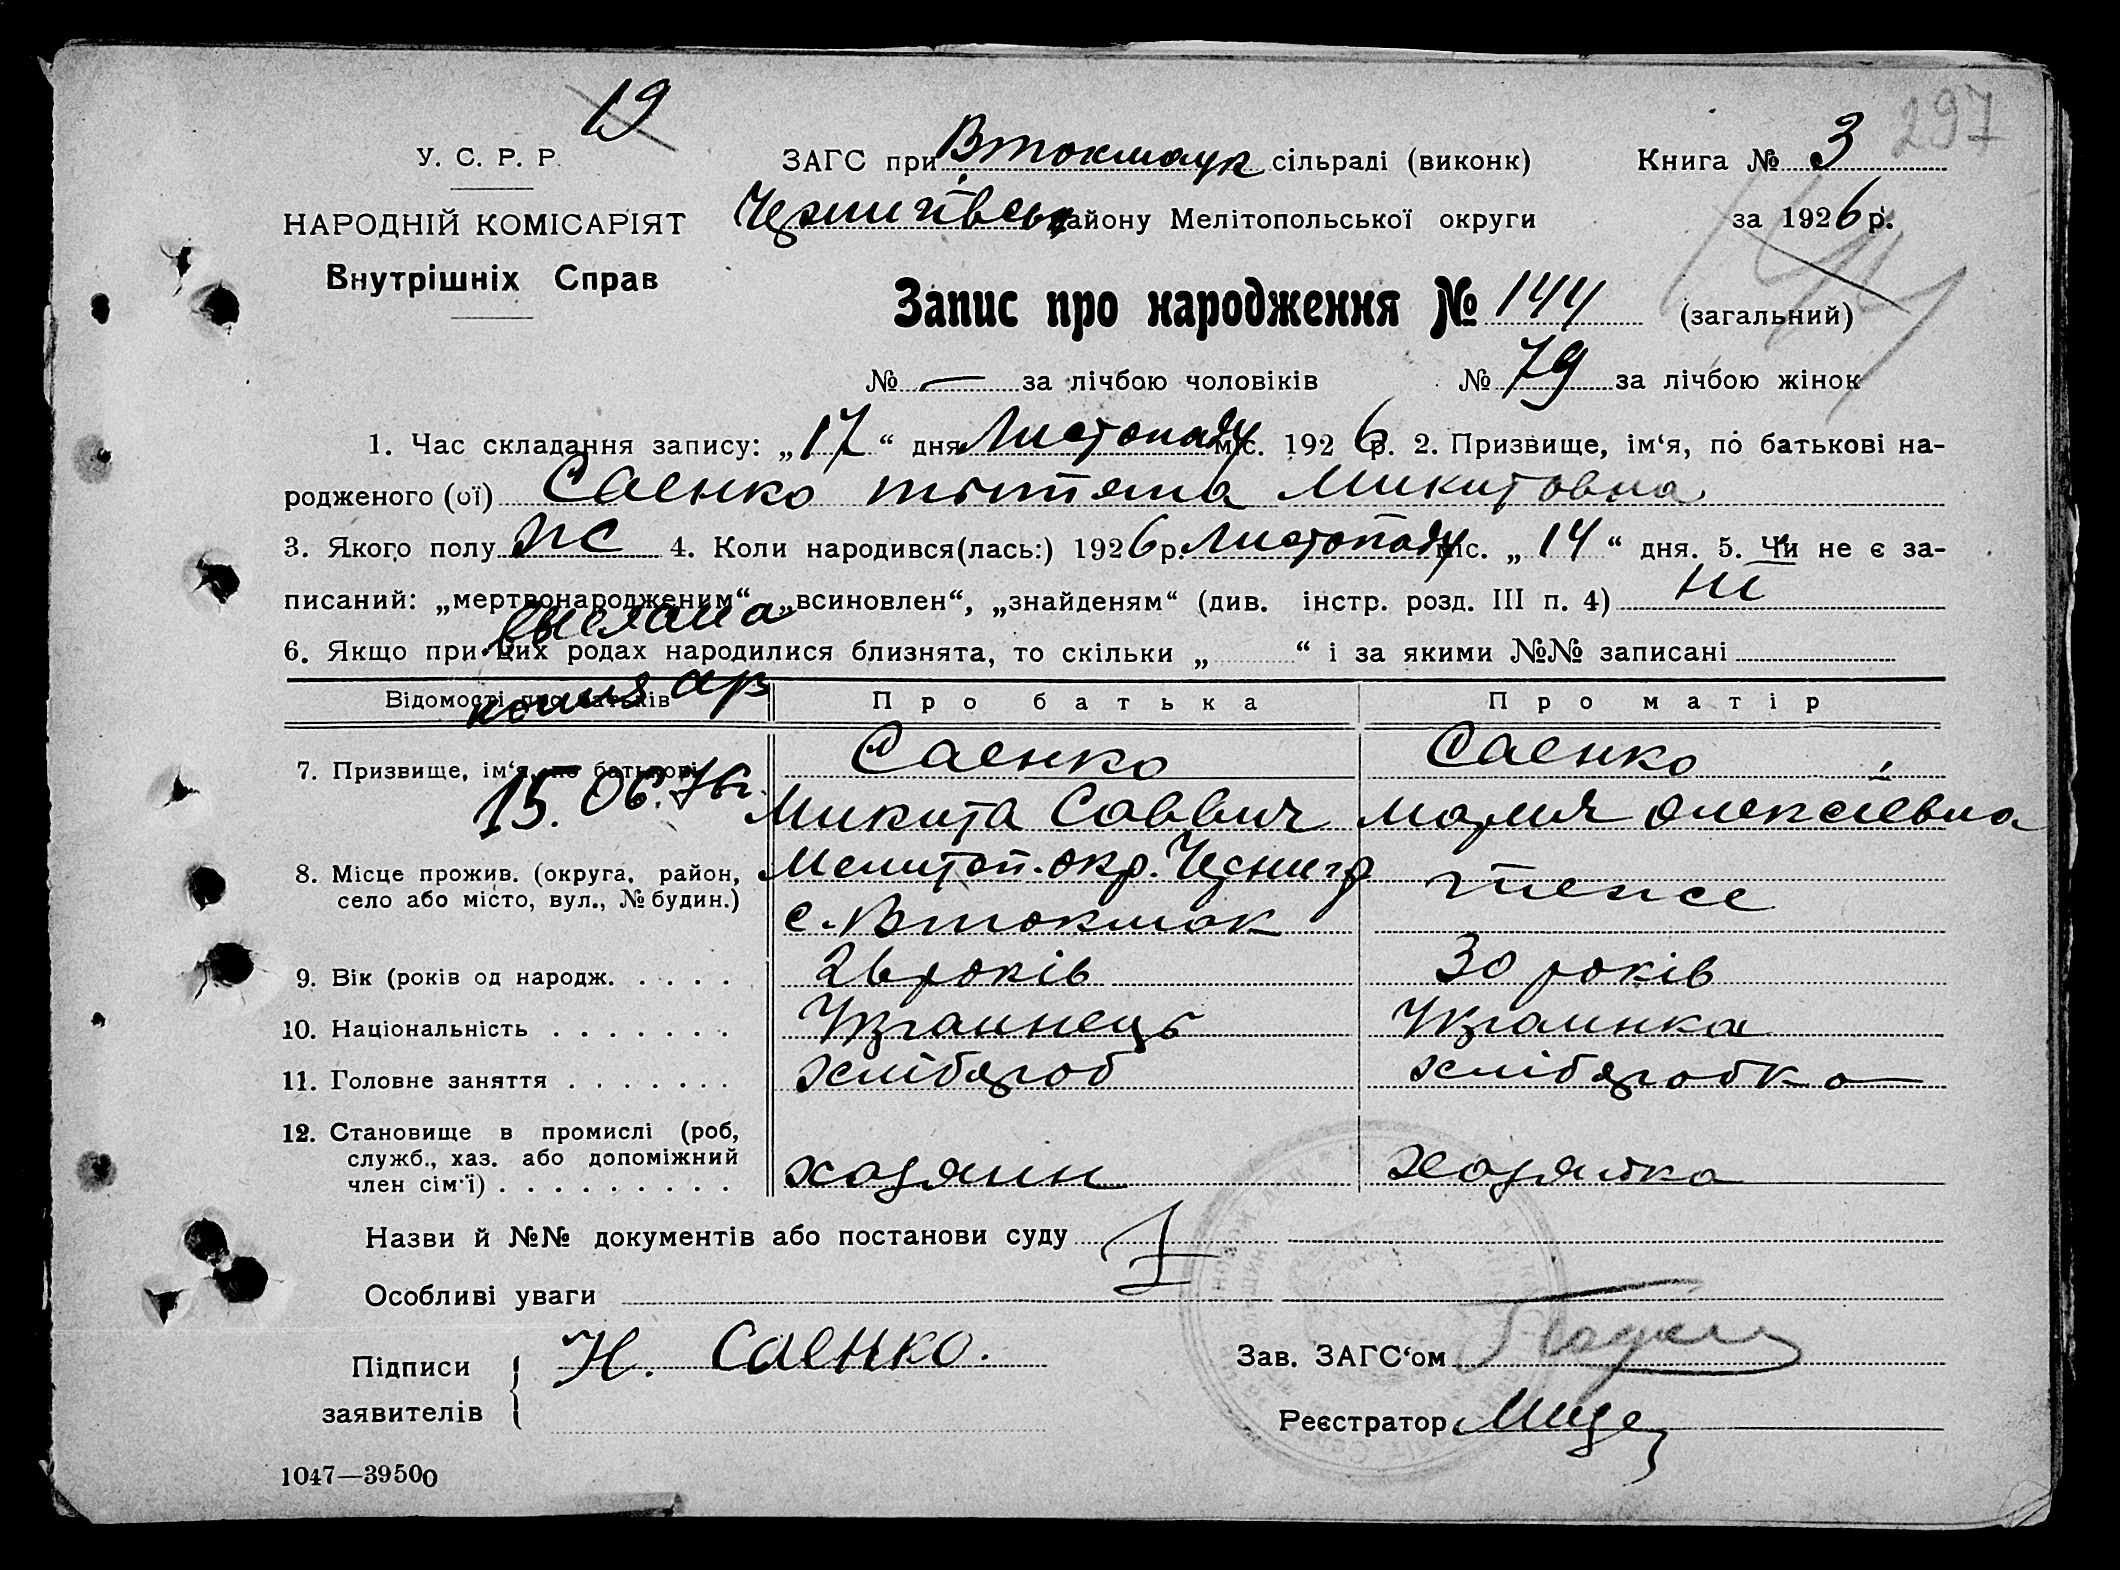 19
297
У. С. Р. Р.
ЗАГС при Втокмацк сільраді (виконк) Книга № 3
НАРОДНІЙ КОМІСАРІЯТ Чернигівськ району Мелітопольської округи за 1926 р.
Внутрішніх Справ
Запис про народження № 144 (загальний)
144
№ — за лічбою чоловіків № 79 за лічбою жінок
1. Час складання запису: „17“ дня Листопаду міс. 1926 р. 2. Призвище, ім‘я, по батькові на-
родженого (ої) Саенко тытяна Микитовна
3. Якого полу жс 4. Коли народився(лась:) 1926 р. Листопаду міс. „14“ дня. 5. Чи не є за-
писаний: „мертвонародженим“ „всиновлен“, „знайденям“ (див. інстр. розд. III п. 4) ні
выслана
6. Якщо при цих родах народилися близнята, то скільки „ “ і за якими №№ записані
копия
Відомості про батьків Про батька Про матір
7. Призвище, ім‘я, по батькові Саенко Саенко
15.06.76г. Микита Саввич Мария Олексіевна
8. Місце прожив. (округа, район, Мелитоп. окр. Черниг р
село або місто, вул., № будин.) с. Втокмак тоже
9. Вік (років од народж. . . . . 26 років 30 років
10. Національність . . . . . . . Украинець Украинка
11. Головне заняття . . . . . . . хлібороб хліборобка
12. Становище в промислі (роб,
служб., хаз. або допоміжний
член сім‘ї) . . . . . . . . . хазяин хазяйка
Назви й №№ документів або постанови суду
Особливі уваги
Підписи Н. Саенко. Зав. ЗАГС‘ом
заявителів Реєстратор
1047—39500